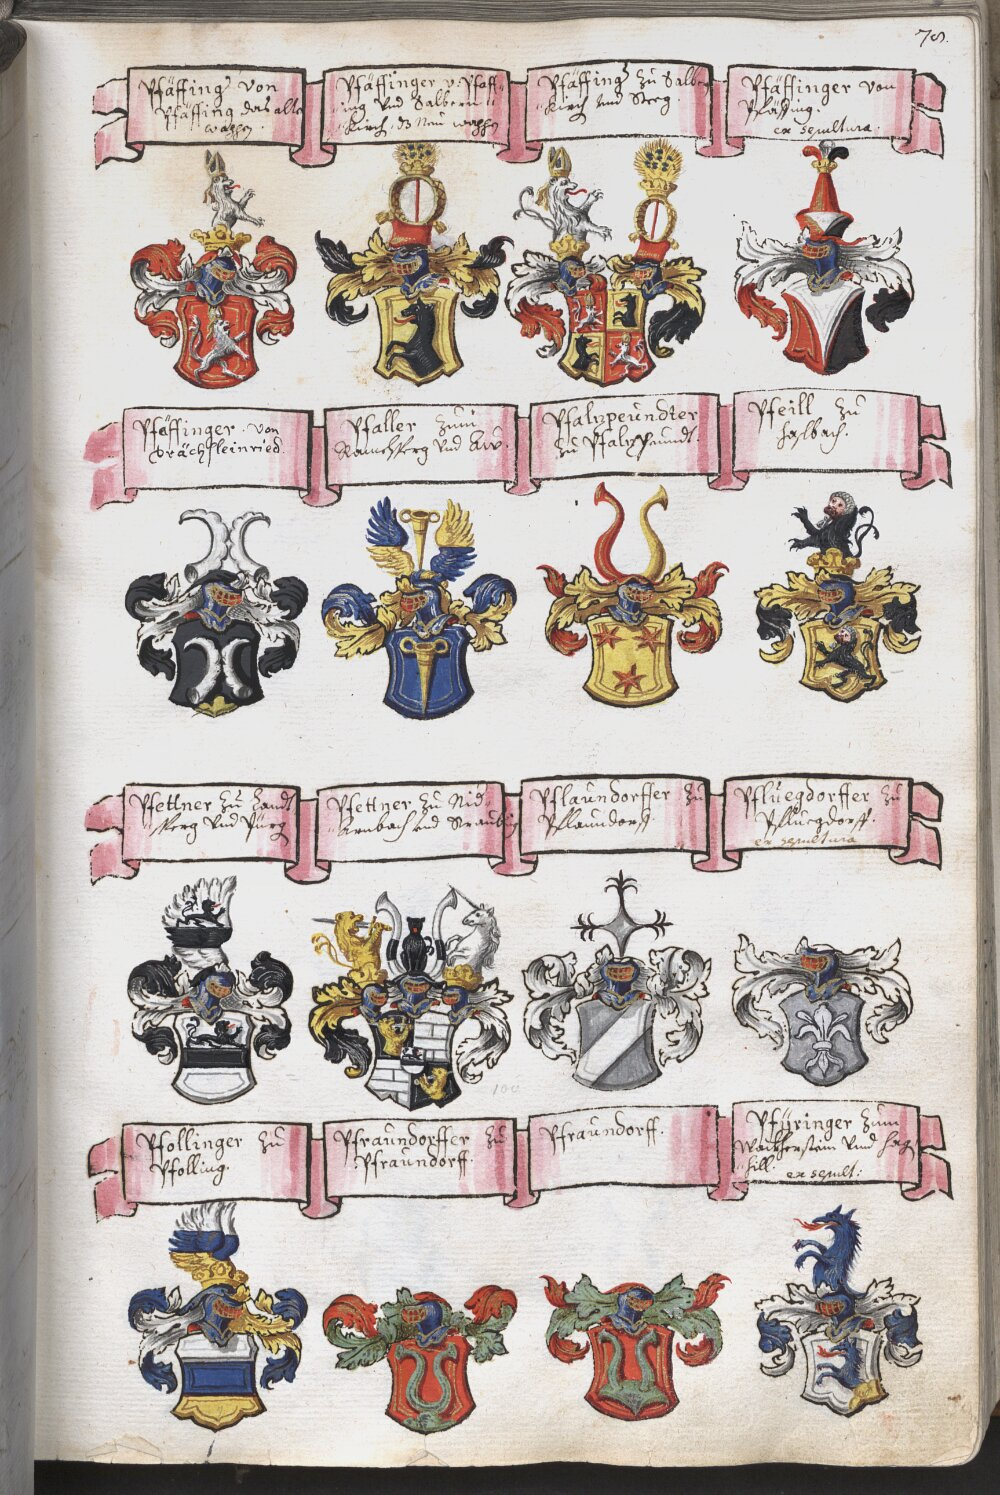 78.
Pfäffing? von
Pfäffing das alte
wappen.
Pfäffinger v. Pfaff-
ing vnd Salbern-
kirch. dz Neu wappen
Pfäffing? zu Salbern-
kirch vnd Steeg.
Pfäffinger von
Pfäffing.
ex sepultura.
Pfäffinger. von
Prächsleinried.
Pfaller zum
Ramelsperg vnd Aw.
Pfalzpeündter
zu Pfalzpeundt.
Pfeill zu
Haslbach.
Pfettner zu Zandt
sperg vnd Pürg
Pfettner zu Nid-
Arnbach vnd Straubing
Pflaundorffer zu
Pflaundorff.
Pfluegdorffer zu
Pfluegdorff.
ex sepultura
Pfollinger zu
Pfolling.
Pfraündorffer zu
Pfraündorff.
Pfraündorff.
Pfüringer zum
vnd
hill.
ex sepult:
100